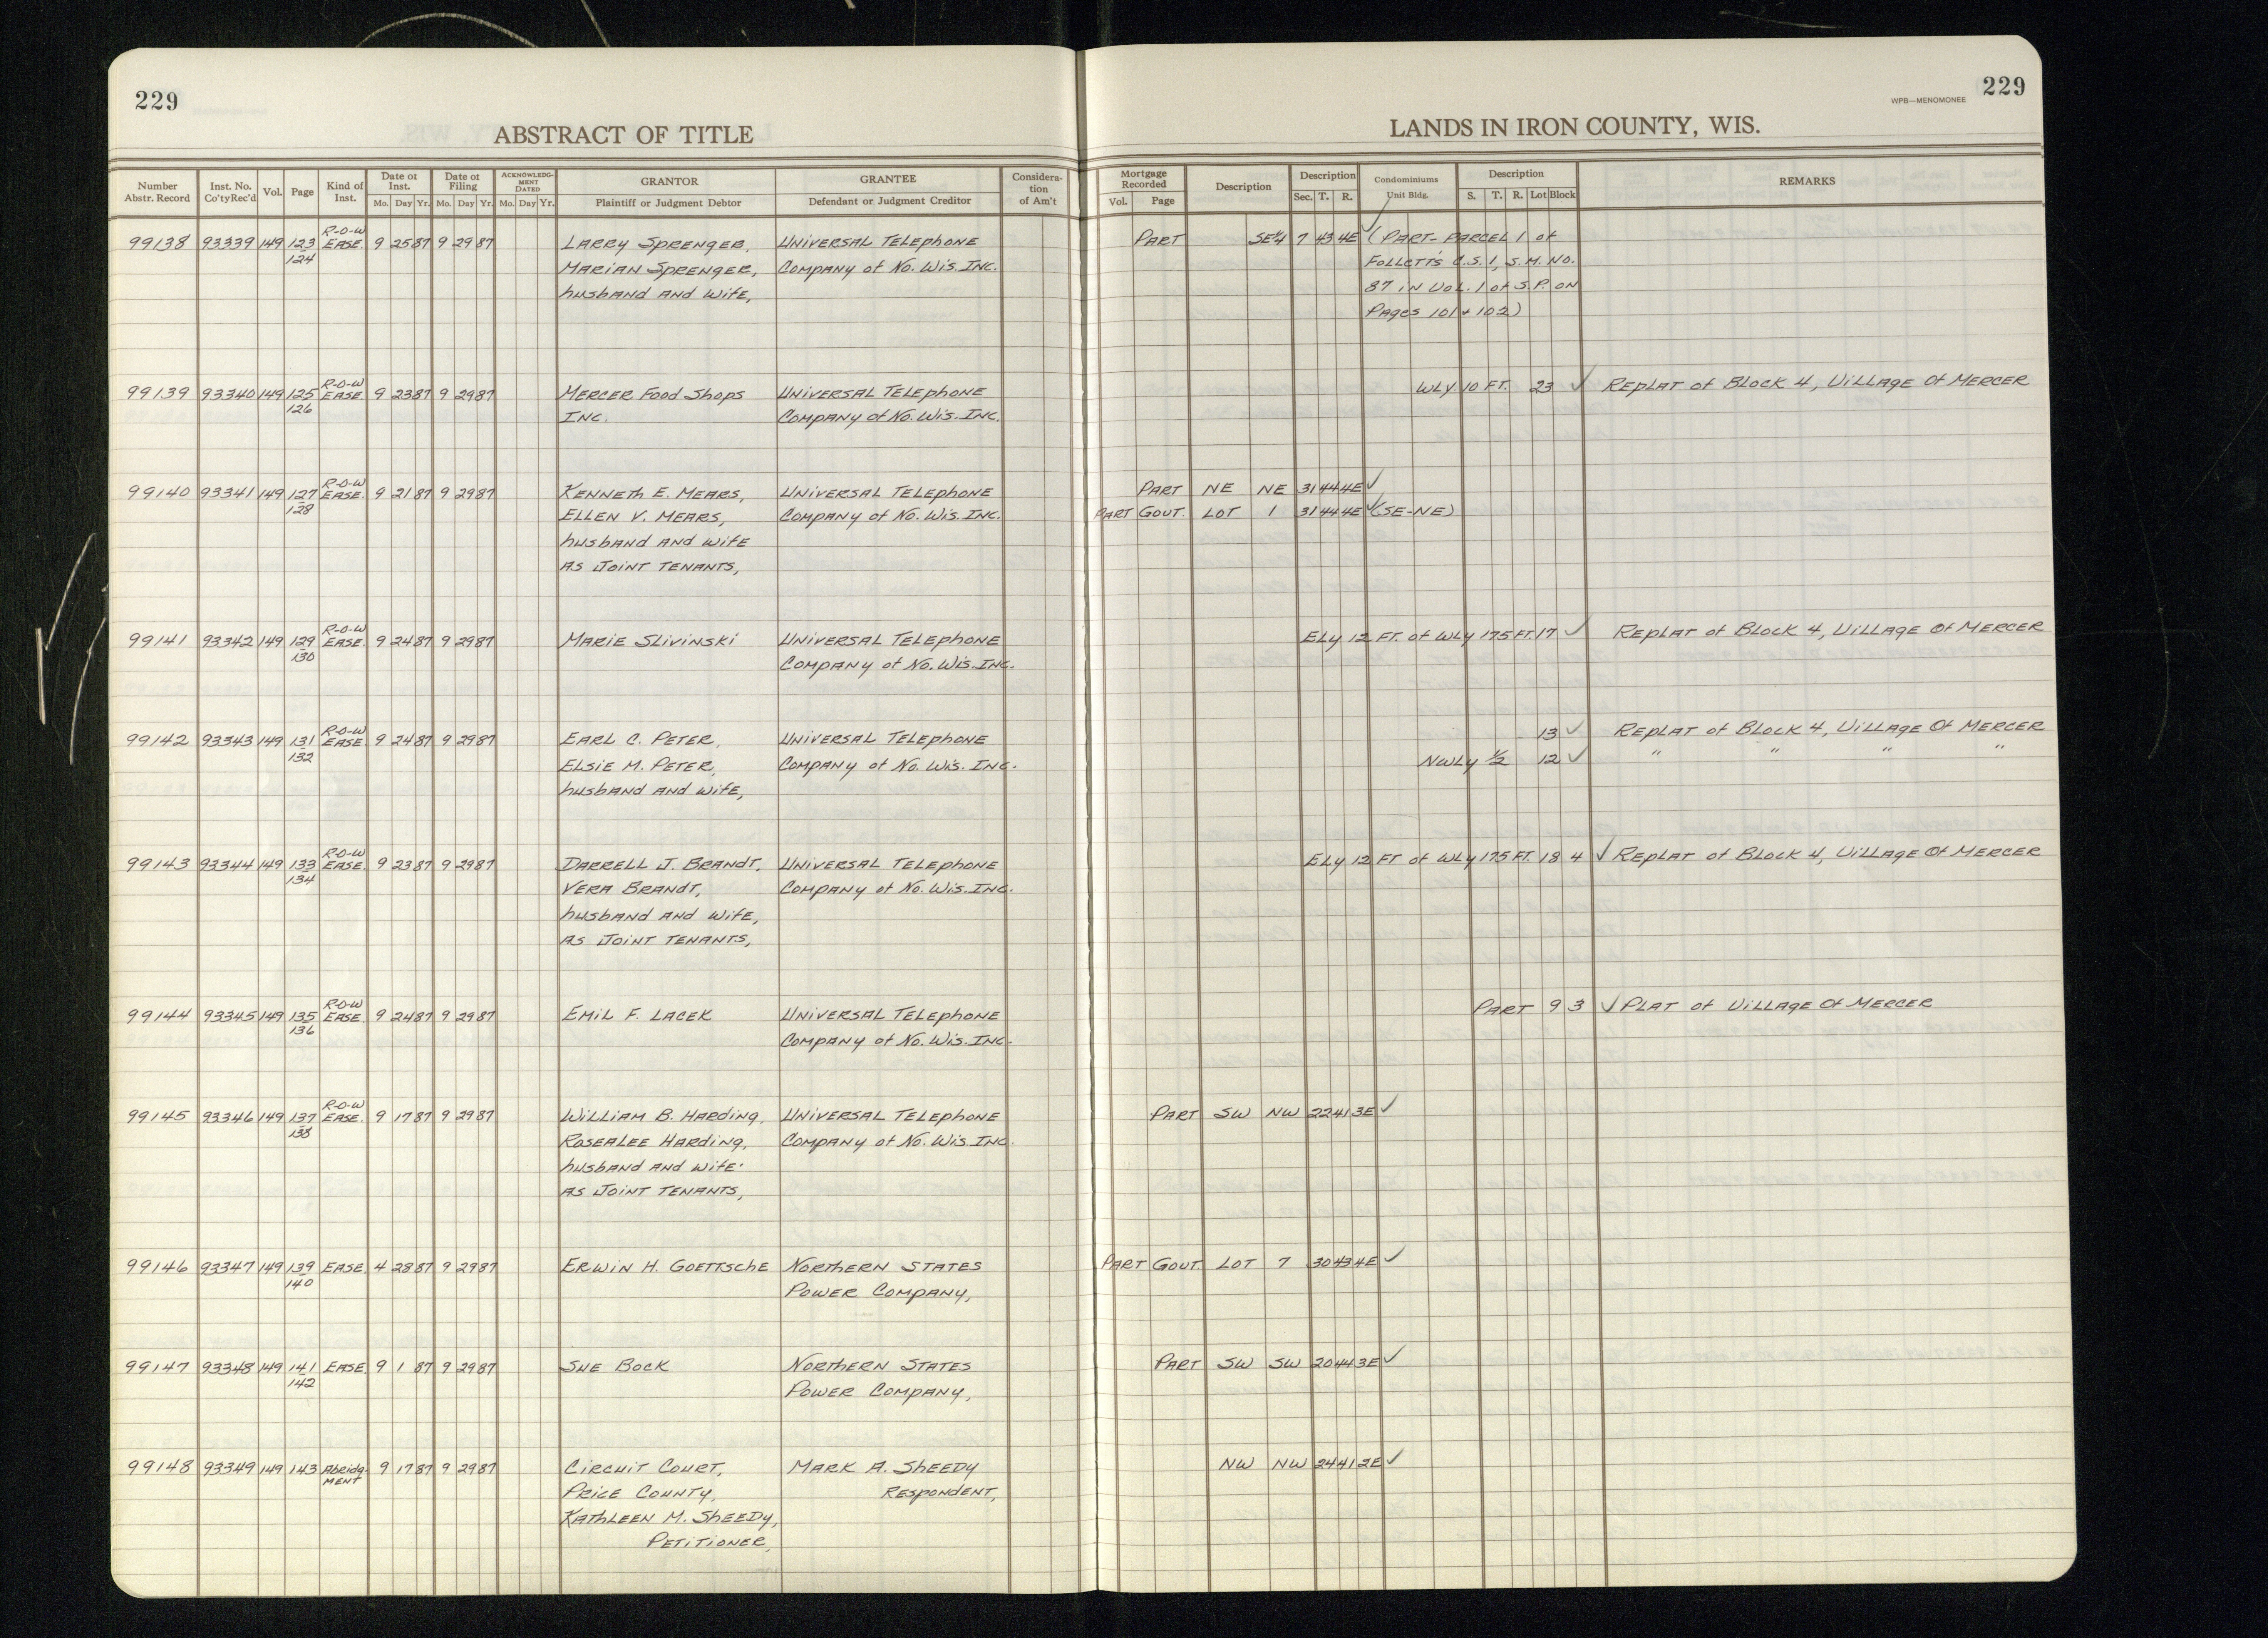 229
229
WPB—MENOMONEE
ABSTRACT OF TITLE
LANDS IN IRON COUNTY, WIS.
Number Abstr. Record | Inst. No. Co'ty Rec'd | Vol. | Page | Kind of Inst. | Date of Inst. Mo. Day Yr. | Date of Filing Mo. Day Yr. | ACKNOWLEDGMENT DATED Mo. Day Yr. | GRANTOR Plaintiff or Judgment Debtor | GRANTEE Defendant or Judgment Creditor | Consideration of Am't | Mortgage Recorded Vol. Page | Description | Description Sec. T. R. | Condominiums Unit Bldg. | Description S. T. R. Lot Block | REMARKS
99138 93339 149 123 R-O-W EASE. 9 25 87 9 29 87 LARRY SPRENGER, UNIVERSAL TELEPHONE PART SE¼ 7 43 4E ✓ (PART-PARCEL 1 of
124 MARIAN SPRENGER, COMPANY of No. Wis. INC. FOLLETT'S C.S.1, S.M. NO.
husband AND Wife, 87 IN VOL. 1 of S.P. ON
PAges 101 + 102)
99139 93340 149 125 R-O-W EASE. 9 23 87 9 29 87 MERCER Food Shops UNIVERSAL TELEPHONE WLY 10 FT. 23 ✓ REPLAT of BLOCK 4, VILLAGE Of MERCER
126 INC. COMPANY of No. Wis. INC.
99140 93341 149 127 R-O-W EASE. 9 21 87 9 29 87 KENNETH E. MEARS, UNIVERSAL TELEPHONE PART NE NE 31 44 4E ✓
128 ELLEN V. MEARS, COMPANY of No. Wis. INC. PART GOVT. LOT 1 31 44 4E ✓ (SE-NE)
husband AND Wife
AS JOINT TENANTS,
99141 93342 149 129 R-O-W EASE. 9 24 87 9 29 87 MARIE SLIVINSKI UNIVERSAL TELEPHONE ELy 12 FT. of WLy 175 FT. 17 ✓ REPLAT of BLOCK 4, VILLAGE Of MERCER
130 COMPANY of No. Wis. INC.
99142 93343 149 131 R-O-W EASE. 9 24 87 9 29 87 EARL C. PETER, UNIVERSAL TELEPHONE 13 ✓ REPLAT of BLOCK 4, VILLAGE Of MERCER
132 ELSIE M. PETER, COMPANY of No. Wis. INC. NWLy ½ 12 ✓ " " " "
husband AND Wife,
99143 93344 149 133 R-O-W EASE. 9 23 87 9 29 87 DARRELL J. BRANDT, UNIVERSAL TELEPHONE ELy 12 FT of WLy 175 FT. 18 4 ✓ REPLAT of BLOCK 4, VILLAGE Of MERCER
134 VERA BRANDT, COMPANY of No. Wis. INC.
husband AND Wife,
AS JOINT TENANTS,
99144 93345 149 135 R-O-W EASE. 9 24 87 9 29 87 EMIL F. LACEK UNIVERSAL TELEPHONE PART 9 3 ✓ PLAT of VILLAGE Of MERCER
136 COMPANY of No. Wis. INC.
99145 93346 149 137 R-O-W EASE. 9 17 87 9 29 87 WILLIAM B. HARDING, UNIVERSAL TELEPHONE PART SW NW 22 41 3E ✓
138 ROSEALEE HARDING, COMPANY of No. Wis. INC.
husband AND Wife
AS JOINT TENANTS,
99146 93347 149 139 EASE. 4 28 87 9 29 87 ERWIN H. GOETTSCHE NORTHERN STATES PART GOVT. LOT 7 30 43 4E ✓
140 POWER COMPANY,
99147 93348 149 141 EASE. 9 1 87 9 29 87 SUE BOCK NORTHERN STATES PART SW SW 20 44 3E ✓
142 POWER COMPANY,
99148 93349 149 143 Abridg-MENT 9 17 87 9 29 87 CIRCUIT COURT, MARK A. SHEEDY NW NW 24 41 2E ✓
PRICE COUNTY, RESPONDENT,
KATHLEEN M. SHEEDY,
PETITIONER,